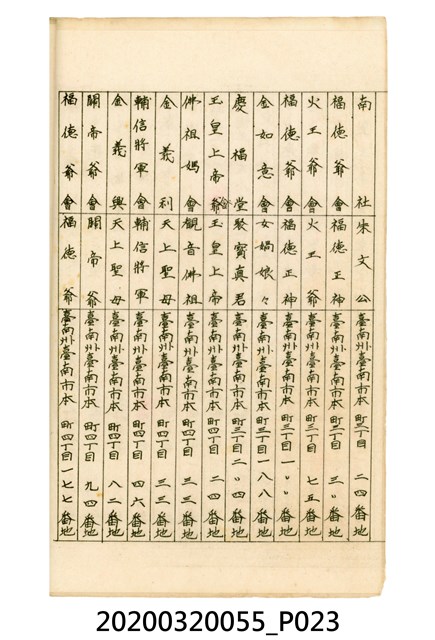 南社 朱文公 臺南州臺南市本町三丁目 二四番地
福德爺會 福德正神 臺南州臺南市本町三丁目 三〃番地
火王爺會 火王爺 臺南州臺南市本町三丁目 七五番地
福德爺會 福德正神 臺南州臺南市本町三丁目 一〃〃番地
金如意會 女媧娘々 臺南州臺南市本町三丁目 一八八番地
慶福堂 聚寶真君 臺南州臺南市本町三丁目 二〃四番地
玉皇上帝爺會 玉皇上帝 臺南州臺南市本町四丁目 二四番地
佛祖媽會 觀音佛祖 臺南州臺南市本町四丁目 三三番地
金義利 天上聖母 臺南州臺南市本町四丁目 三三番地
輔信將軍會 輔信將軍 臺南州臺南市本町四丁目 四六番地
金義興 天上聖母 臺南州臺南市本町四丁目 八二番地
關帝爺會 關帝爺 臺南州臺南市本町四丁目 九四番地
福德爺會 福德爺 臺南州臺南市本町四丁目 一七七番地
20200320055_P023